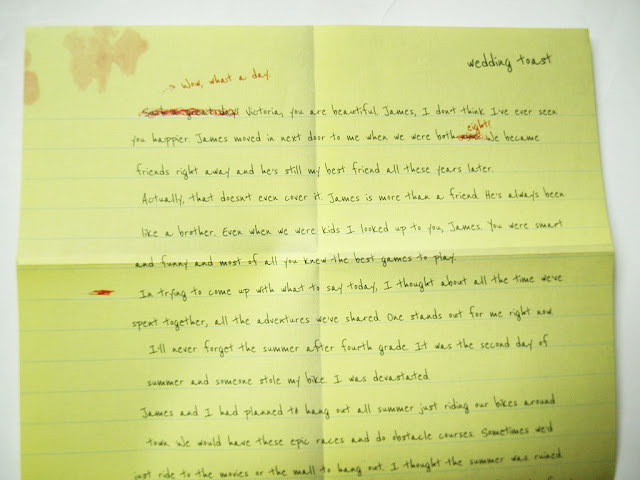 wedding toast
Wow, what a day.
Victoria, you are beautiful. James, I don't think I've ever seen
eight.
you happier. James moved in next door to me when we were both We became
friends right away and he's still my best friend all these years later.
Actually, that doesn't even cover it. James is more than a friend. He's always been
like a brother. Even when we were kids I looked up to you, James. You were smart
and funny and most of all you knew the best games to play.
In trying to come up with what to say today, I thought about all the time we've
spent together, all the adventures we've shared. One stands out for me right now.
I'll never forget the summer after fourth grade. It was the second day of
summer and someone stole my bike. I was devastated.
James and I had planned to hang out all summer just riding our bikes around
town. We would have these epic races and do obstacle courses. Sometimes we'd
just ride to the movies or the mall to hang out. I thought the summer was ruined.